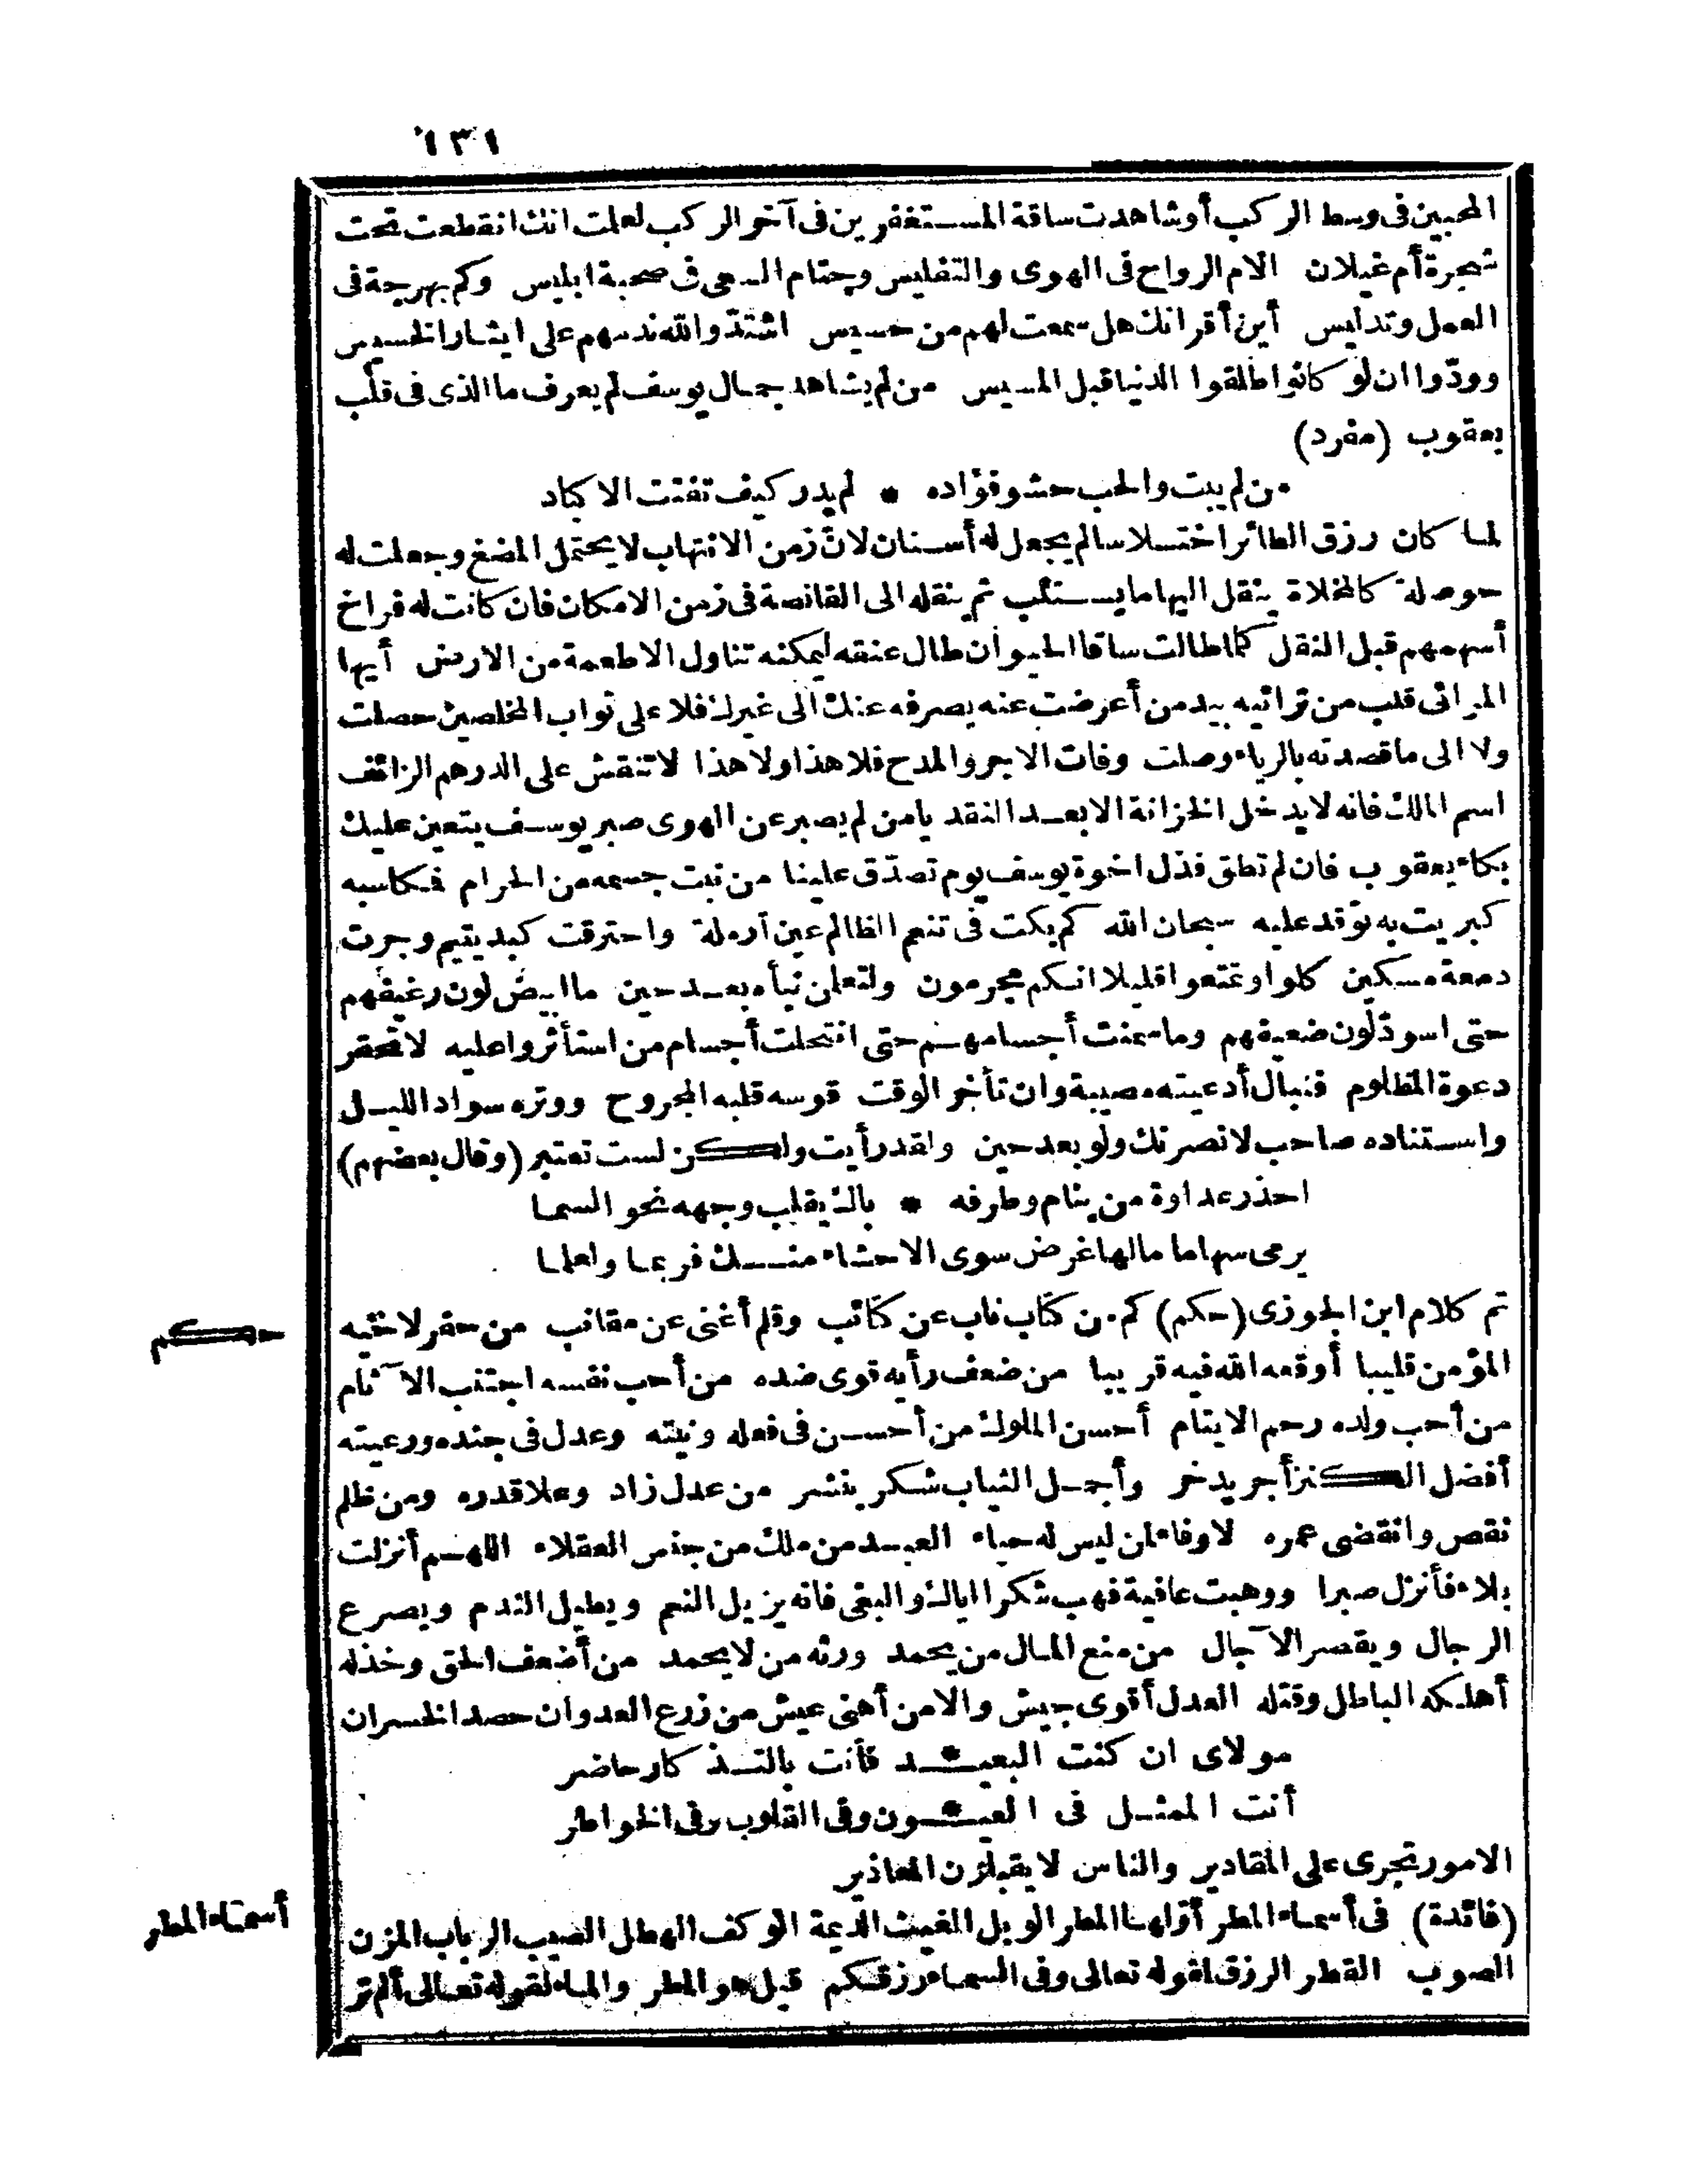 ١٣١
المحبين فى وسط الركب أوشاهدت ساقة المستغفرين فى آخر الركب لعلمت انك انقطعت تحت
شجرة أم غيلان الام الرواح فى الهوى والتغليس وحتام السعى فى صحبة ابليس وكم بهرجة فى
العمل وتدليس أين أقرانك هل سمعت لهم من حسيس اشتدّ والله ندمهم على ايثار الخسيس
وودّوا ان لو كانوا طلقوا الدنيا قبل المسيس من لم يشاهد جمال يوسف لم يعرف ما الذى فى قلب
يعقوب (مفرد)
من لم يبت والحب حشو فؤاده * لم يدر كيف تفتت الاكباد
لما كان رزق الطائر اختلاسا لم يجعل له أسنان لانّ زمن الانتهاب لا يحتمل المضغ وجعلت له
حوصلة كالمخلاة ينقل اليها ما يستلب ثم ينقله الى القانصة فى زمن الامكان فان كانت له فراخ
أسهمهم قبل النقل كلما طالت ساقا الحيوان طال عنقه ليمكنه تناول الاطعمة من الارض أيها
المرائى قلب من ترائيه بيد من أعرضت عنه يصرفه عنك الى غيرك فلا على ثواب المخلصين حصلت
ولا الى ما قصدته بالرياء وصلت وفات الاجر والمدح فلا هذا ولا هذا لا تنقش على الدرهم الزائف
اسم المالك فانه لا يدخل الخزانة الا بعد النقد يا من لم يصبر عن الهوى صبر يوسف يتعين عليك
بكاء يعقوب فان لم تطق فذل اخوة يوسف يوم تصدّق علينا من نبت جسمه من الحرام فكاسبه
كبريت به توقد عليه سبحان الله كم بكت فى تنعم الظالم عين أرملة واحترقت كبد يتيم وجرت
دمعة مسكين كلوا وتمتعوا قليلا انكم مجرمون ولتعلمن نبأه بعد حين ما ابيض لون رغيفهم
حتى اسودّ لون ضعيفهم وما سمنت أجسامهم حتى انتحلت أجسام من استأثروا عليه لا تحتقر
دعوة المظلوم فنبال أدعيته مصيبة وان تأخر الوقت قوسه قلبه المجروح ووتره سواد الليل
واستناده صاحب لانصرنك ولو بعد حين ولقد رأيت ولكن لست تعتبر (وقال بعضهم)
احذر عداوة من ينام وطرفه * باك يقلب وجهه نحو السما
يرمى سهاما ما لها غرض سوى الاحشاء منك فربما ولعلما
تم كلام ابن الجوزى (حكم) كم من كتاب ناب عن كتائب وقلم أغنى عن مقانب من حفر لاخيه
حكم
المؤمن قليبا أوقعه الله فيه قريبا من ضعف رأيه قوى ضده من أحب نفسه اجتنب الآثام
من أحب ولده رحم الايتام أحسن الملوك من أحسن فى فعله ونيته وعدل فى جنده ورعيته
أفضل الكنز أجر يدخر وأجمل الثياب شكر ينشر من عدل زاد وعلا قدره ومن ظلم
نقص وانقضى عمره لا وفاء لمن ليس له حياء العبد من ملك من جنس العقلاء اللهم أنزلت
بلاء فأنزل صبرا ووهبت عافية فهب شكرا اياك والبغى فانه يزيل النعم ويطيل الندم ويصرع
الرجال ويقصر الآجال من منع المال من يحمد ورثه من لا يحمد من أضعف الحق وخذله
أهلكه الباطل وقتله العدل أقوى جيش والامن أهنى عيش من زرع العدوان حصد الخسران
مولاى ان كنت البعيد * فأنت بالتذكار حاضر
أنت الممثل فى العيون * وفى القلوب وفى الخواطر
الامور تجرى على المقادير والناس لا يقبلون المعاذير
(فائدة) فى أسماء المطر أوّلها المطر الوبل الغيث الديمة الوكف الهطل الصيب الرباب المزن
أسماء المطر
الصوب القطر الرزق لقوله تعالى وفى السماء رزقكم قيل هو المطر والماء لقوله تعالى ألم تر